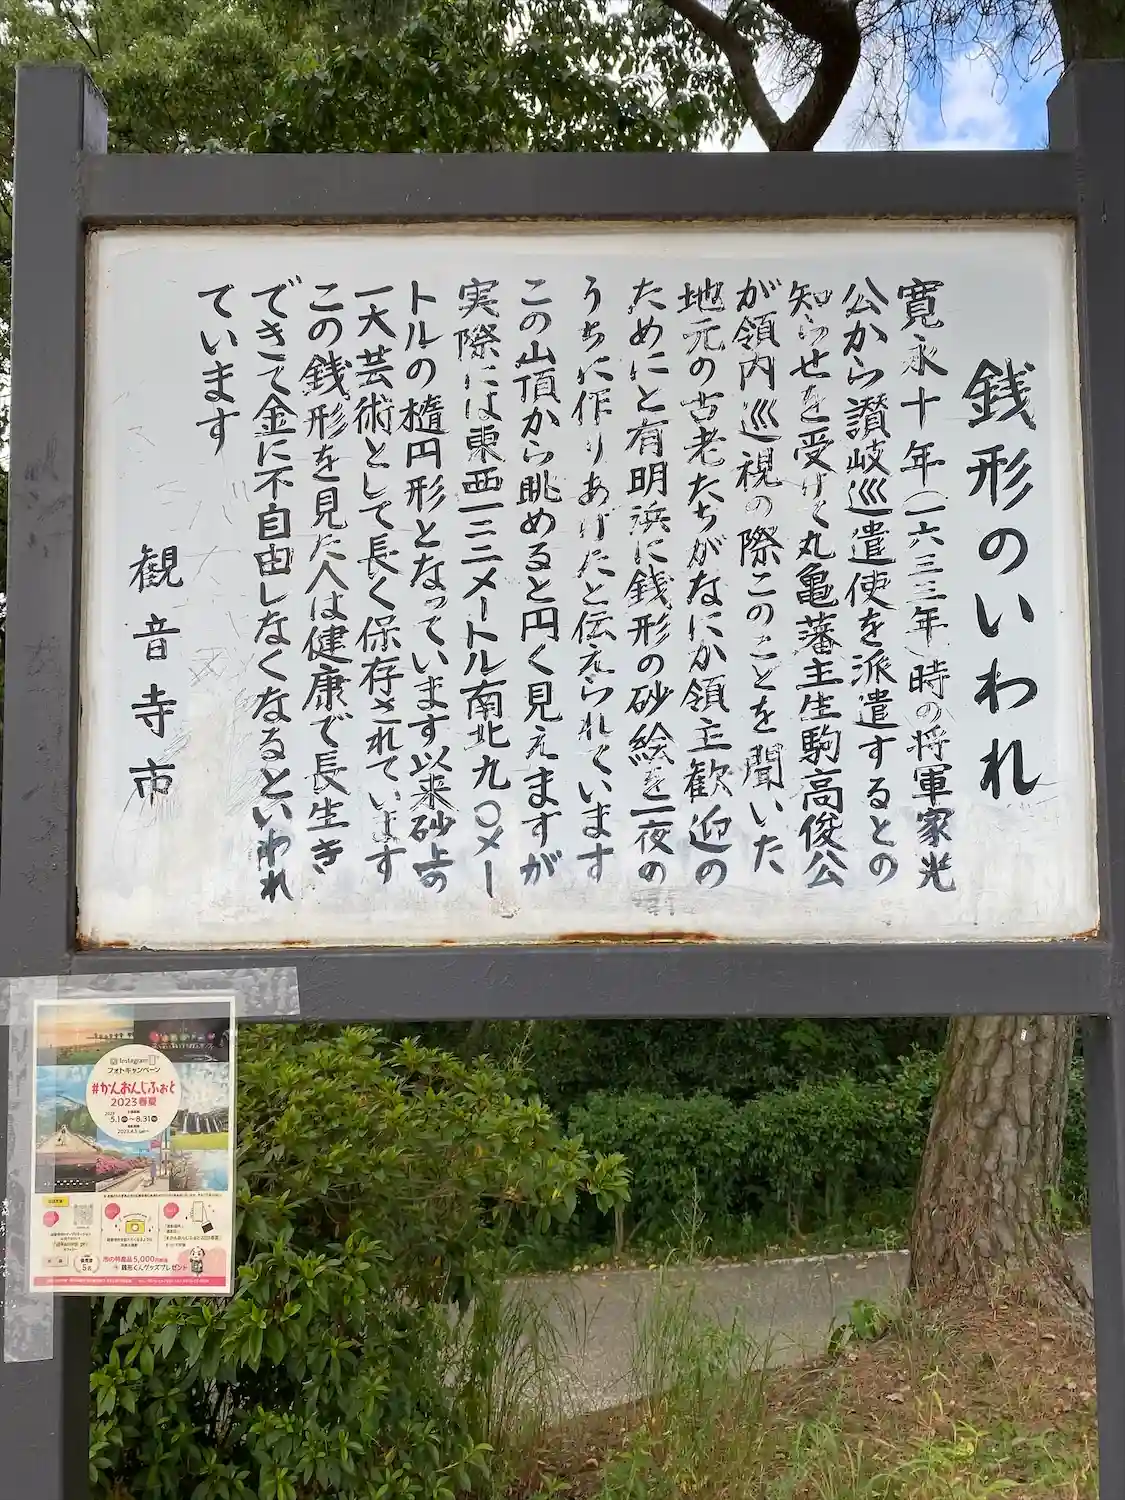 銭形のいわれ
寛永十年(一六三三年)時の将軍家光
公から讃岐巡遣使を派遣するとの
知らせを受けて丸亀藩主生駒高俊公
が領内巡視の際このことを聞いた
地元の古老たちがなにか領主歓迎の
ためにと有明浜に銭形の砂絵を一夜の
うちに作りあげたと伝えられています
この山頂から眺めると円く見えますが
実際には東西一二二メートル南北九〇メー
トルの楕円形となっています以来砂上の
一大芸術として長く保存されています
この銭形を見た人は健康で長生き
できて金に不自由しなくなるといわれ
ています
観音寺市
Instagram
フォトキャンペーン
#かんおんじふぉと
2023春夏
5.1〜8.31
市の特産品5,000円相当
+銭形くんグッズプレゼント
5名